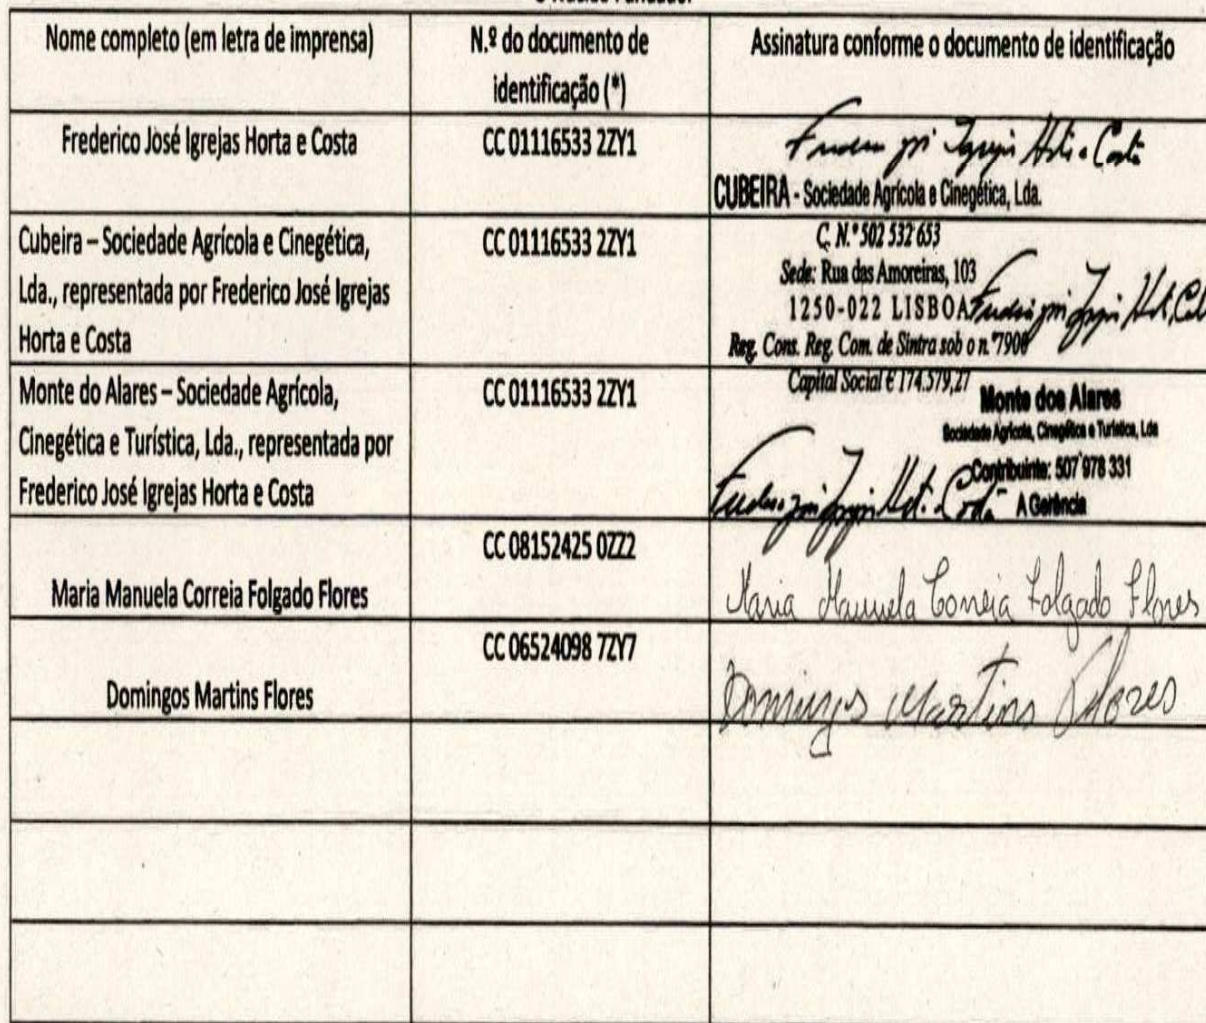 Nome completo (em letra de imprensa)
N.º do documento de
identificação (*)
Assinatura conforme o documento de identificação
Frederico José Igrejas Horta e Costa
CC 01116533 2ZY1
CUBEIRA - Sociedade Agrícola e Cinegética, Lda.
Cubeira – Sociedade Agrícola e Cinegética,
Lda., representada por Frederico José Igrejas
Horta e Costa
CC 01116533 2ZY1
C. N.º 502 532 653
Sede: Rua das Amoreiras, 103
1250-022 LISBOA
Reg. Cons. Reg. Com. de Sintra sob o n.º 7900
Capital Social € 174.579,27
Monte do Alares – Sociedade Agrícola,
Cinegética e Turística, Lda., representada por
Frederico José Igrejas Horta e Costa
CC 01116533 2ZY1
Monte dos Alares
Sociedade Agrícola, Cinegética e Turística, Lda
Contribuinte: 507 978 331
A Gerência
Maria Manuela Correia Folgado Flores
CC 08152425 0ZZ2
Maria Manuela Correia Folgado Flores
Domingos Martins Flores
CC 06524098 7ZY7
Domingos Martins Flores